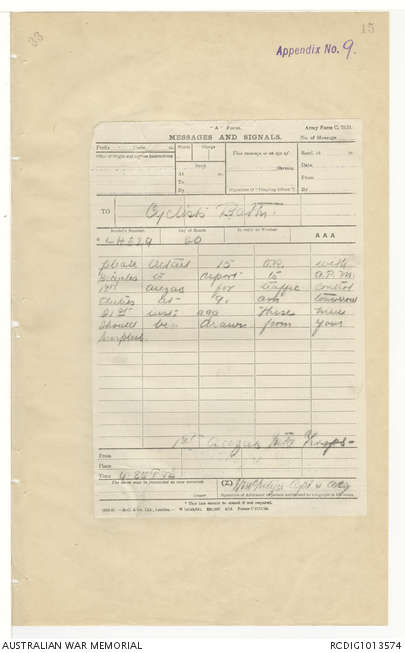 33
15
Appendix No. 9.
"A" Form.
Army Form C. 2121.
MESSAGES AND SIGNALS.
No. of Message
Prefix Code m.
Words Charge
This message is on a/c of
Recd. at m.
Office of Origin and Service Instructions
Sent
Date
At m.
Service.
From
To
By
(Signature of "Franking Officer.")
By
TO Cyclist Battn.
Sender's Number
Day of Month
In reply to Number
AAA
20
please detail 15 O.R. with
bicycles to report to A.P.M.
1st Anzac for traffic control
duties at 9. am tomorrow
21st inst: aaa These men
should be drawn from your
surplus.
1st Anzac Mtd Troops
From
Place
Time
The above may be forwarded as now corrected.
(Z)
Censor.
Signature of Addressor or person authorised to telegraph in his name.
* This line should be erased if not required.
AUSTRALIAN WAR MEMORIAL
RCDIG1013574